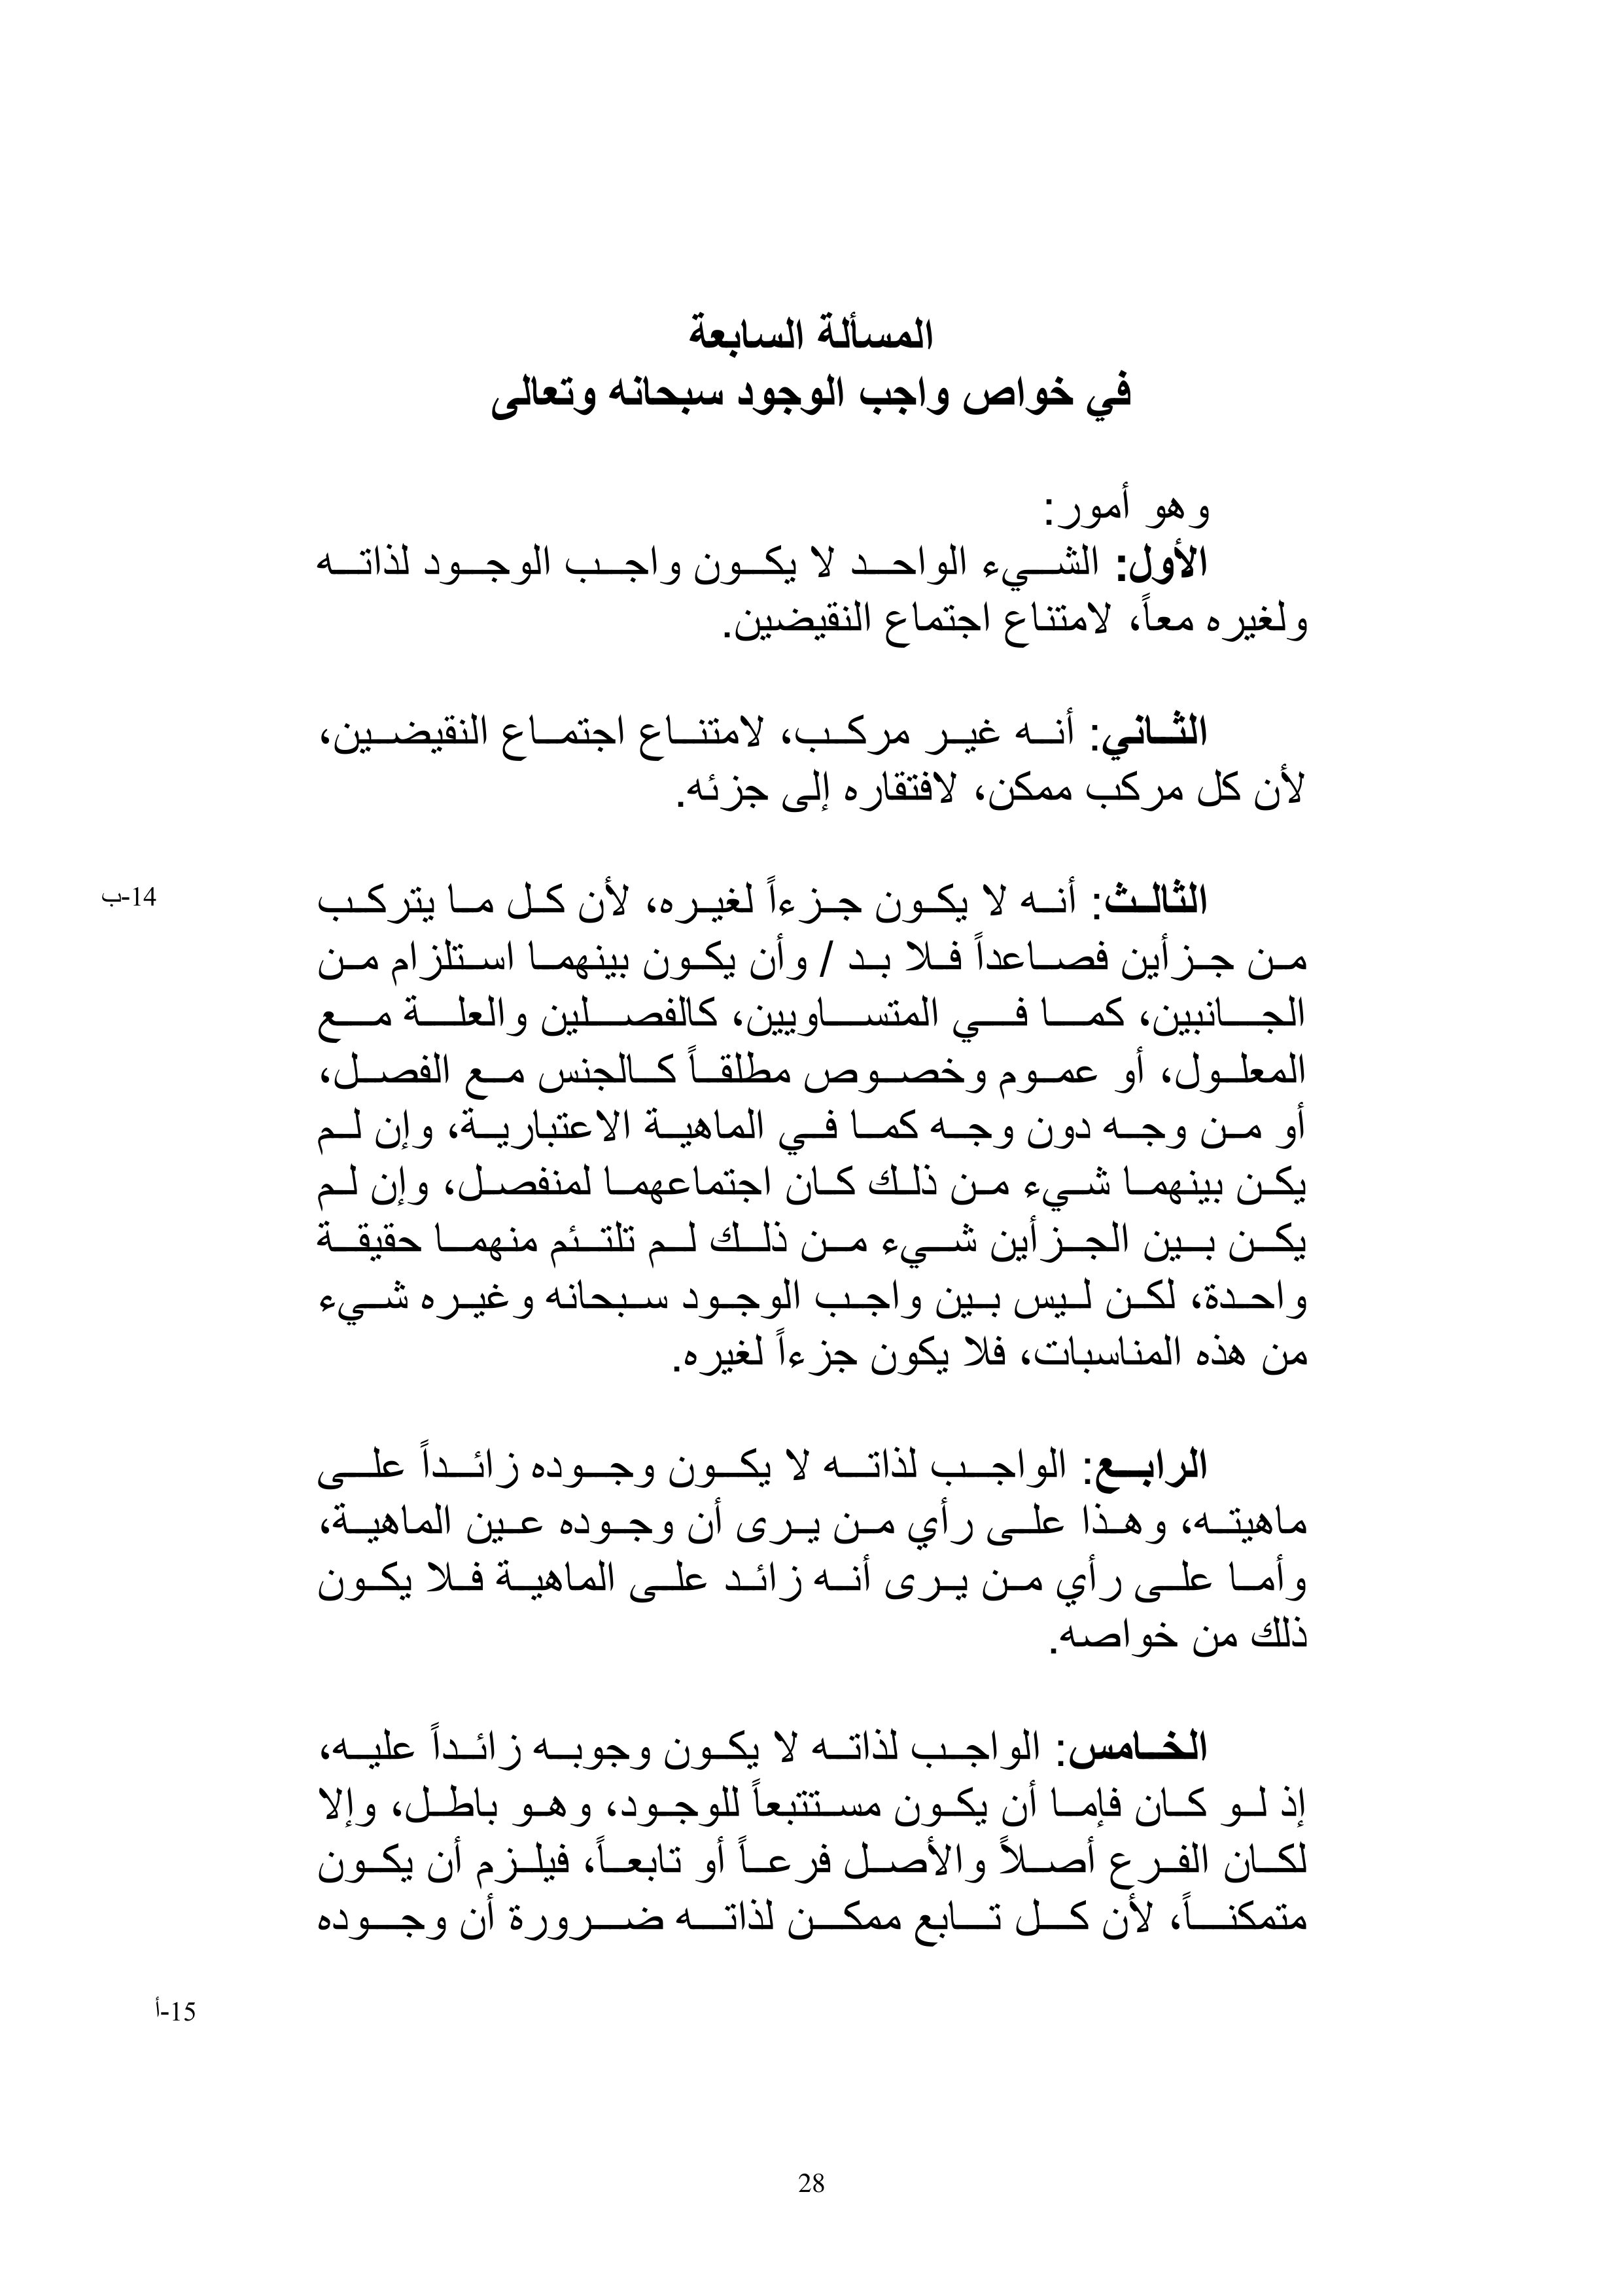 المسألة السابعة
في خواص واجب الوجود سبحانه وتعالى
وهو أمور:
الأول: الشيء الواحد لا يكون واجب الوجود لذاته
ولغيره معاً، لامتناع اجتماع النقيضين.
الثاني: أنه غير مركب، لامتناع اجتماع النقيضين،
لأن كل مركب ممكن، لافتقاره إلى جزئه.
الثالث: أنه لا يكون جزءاً لغيره، لأن كل ما يتركب
14-ب
من جزأين فصاعداً فلا بد / وأن يكون بينهما استلزام من
الجانبين، كما في المتساويين، كالفصلين والعلة مع
المعلول، أو عموم وخصوص مطلقاً كالجنس مع الفصل،
أو من وجه دون وجه كما في الماهية الاعتبارية، وإن لم
يكن بينهما شيء من ذلك كان اجتماعهما لمنفصل، وإن لم
يكن بين الجزأين شيء من ذلك لم تلتئم منهما حقيقة
واحدة، لكن ليس بين واجب الوجود سبحانه وغيره شيء
من هذه المناسبات، فلا يكون جزءاً لغيره.
الرابع: الواجب لذاته لا يكون وجوده زائداً على
ماهيته، وهذا على رأي من يرى أن وجوده عين الماهية،
وأما على رأي من يرى أنه زائد على الماهية فلا يكون
ذلك من خواصه.
الخامس: الواجب لذاته لا يكون وجوبه زائداً عليه،
إذ لو كان فإما أن يكون مستتبعاً للوجود، وهو باطل، وإلا
لكان الفرع أصلاً والأصل فرعاً أو تابعاً، فيلزم أن يكون
متمكناً، لأن كل تابع ممكن لذاته ضرورة أن وجوده
15-أ
28